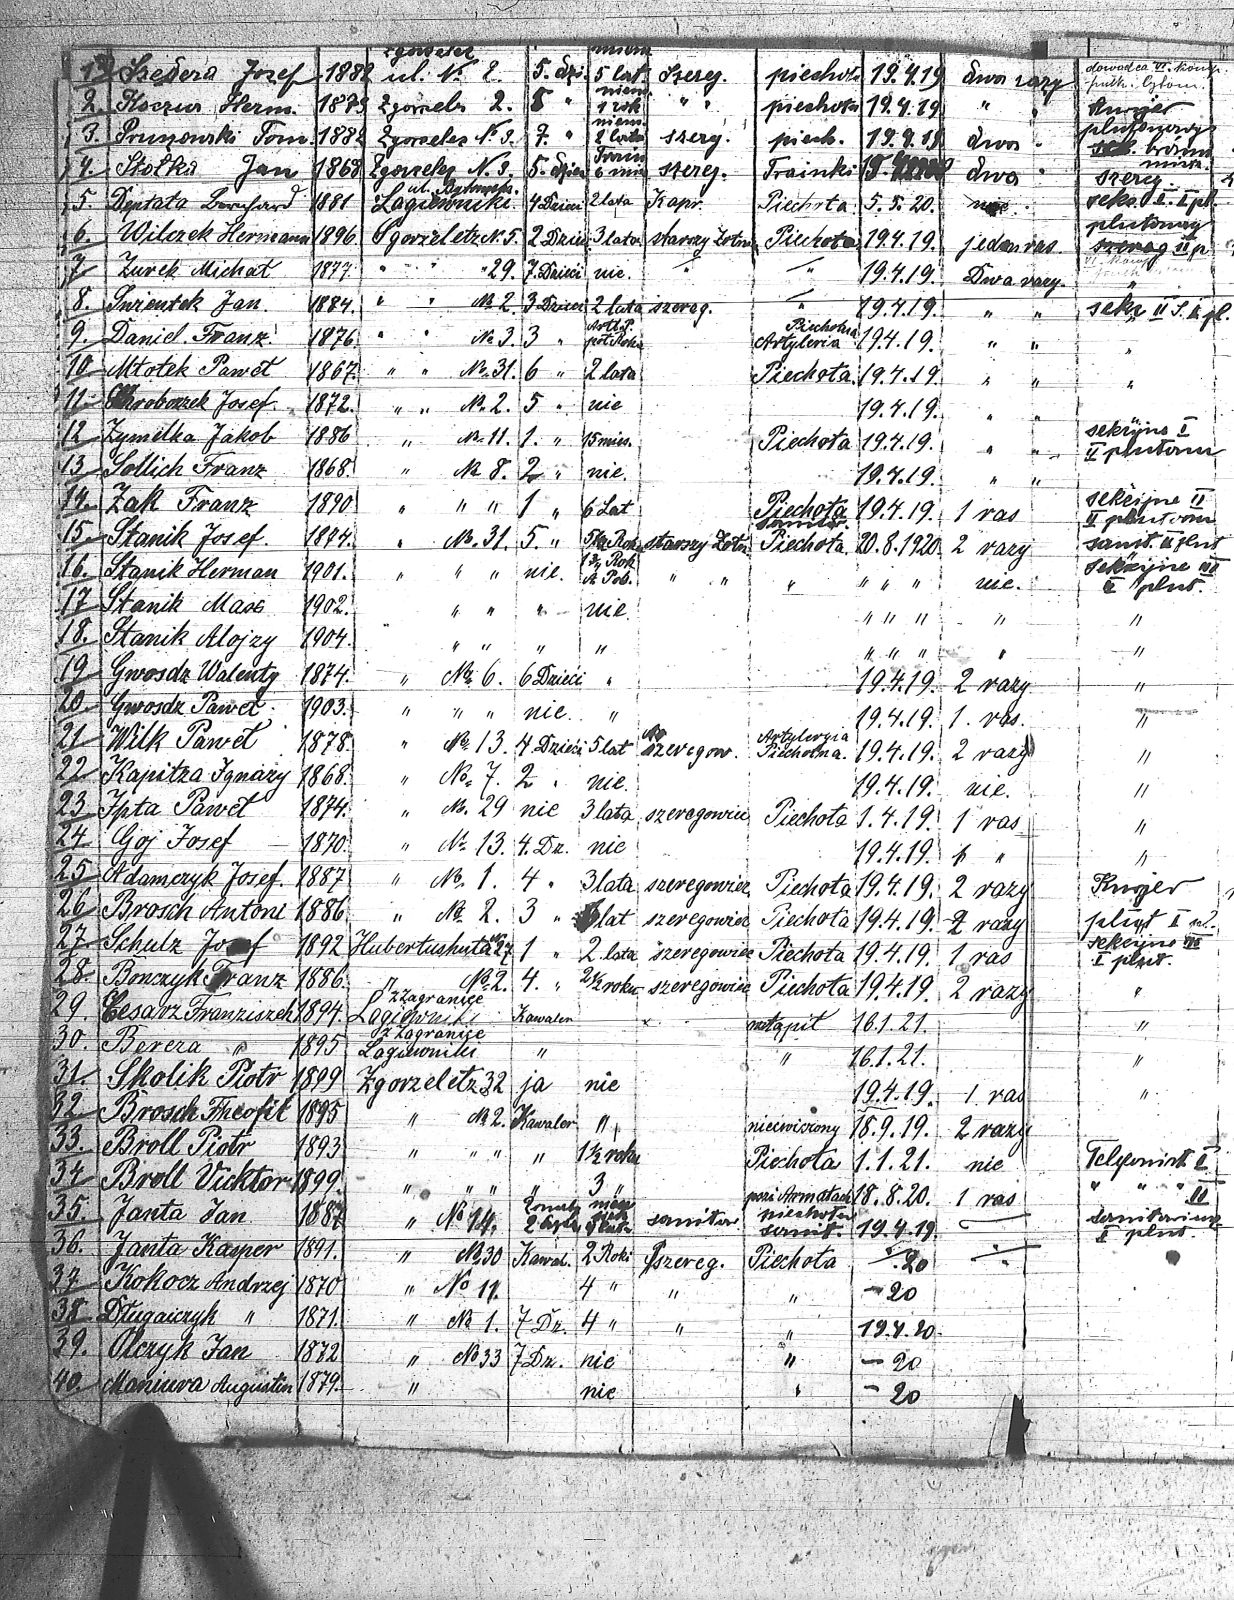 1. Szedera Jozef 1882 Zgorzelec ul. No. 2. 5. dzi. niem. 5 lat szereg. piechota 19.4.19 dwa razy dowodca VI. komp.
2. Koczur Herm. 1873 Zgorzelec 2. 5 " niem. 1 rok " " piechota 19.4.19 " " Kurjer
3. Tom. 1882 Zgorzelec No 3. 7. " niem. 2 lata szereg. piech. 19.4.19 dwa plutonowy
4. Stotka Jan 1868 Zgorzelec N. 3. 5. dzieci 6 szereg. Trainki dwa szereg
5. Deptata 1881 Łagiewniki 4 Dzieci 2 lata Kapr. Piechota 5.5.20. nie. sekc. I. I pl.
6. Wilczek Hermann 1896 Sgorzeletz N. 5. 2 Dzieci 3 lata starszy Żołn Piechota 19.4.19. jeden ras. plutonowy II p
7 Zurek Michał 1877 " " " 29. 7. Dzieci nie. " " 19.4.19. Dwa razy. "
8. Jan. 1884. " " No 2. 3 Dzieci 2 lata szereg. " 19.4.19. " " sekc II S. II pl.
9. Daniel. Franz. 1876 " " No 3. 3 " Artl. P. pół Roka Piechotna Artyleria 19.4.19. " " "
10 Młotek Paweł 1867. " " No. 31. 6 " 2 lata Piechota. 19.4.19. " " "
11. Chroboczek Josef. 1872. " " No. 2. 5 " nie 19.4.19. " "
12 Zymelka Jakob 1886 " No. 11. 1. " 15 mies. Piechota 19.4.19. " " sekcyjne I II plutonu
13 Sollich Franz 1868. " No 8. 2 " nie. 19.4.19. " "
14. Żak Franz 1890 " " " 1 " 6 Lat Piechota 19.4.19. 1 ras sekcyjne II II plutonu
15. Stanik Josef. 1894. " No. 31. 5. " 5½ Rok starszy Żołn sanitär. Piechota. 20.8.1920. 2 razy sanit. II plut
16. Stanik Herman 1901. " " " nie. 1½ Rok " " " " " " nie. sekcyjne III II plut.
17 Stanik Max 1902. " " " nie " " " " "
18. Stanik Alojzy 1904. " " " " " " " " "
19 Gwosdz Walenty 1874. " No. 6. 6 Dzieci " 19.4.19. 2 razy "
20. Gwosdz Paweł. 1903. " " " nie. " 19.4.19. 1. ras. "
21 Wilk Paweł 1878. " No. 13. 4. Dzieci 5 lat szeregow. Artylerya Piechotna. 19.4.19. 2 razy "
22 Kapitza Ignazy 1868. " No. 7. 2 " nie. 19.4.19. nie. "
23. Ipta Paweł 1874. " No. 29 nie 3 lata szeregowiec Piechota 1.4.19. 1 ras "
24 Goj Josef 1870. " No. 13. 4. Dz. nie 19.4.19. 1 " "
25 Adamczyk Josef. 1887 " No. 1. 4 " 3 lata szeregowiec Piechota 19.4.19. 2 razy Kurjer
26 Brosch Antoni 1886 " No. 2. 3 " lat szeregowiec Piechota 19.4.19. 2 razy
27. Schulz Josef 1892 Hubertushuta 27 1 " 2 lata szeregowiec Piechota 19.4.19. 1 ras sekcyjne III I plut.
28. Bonczyk Franz 1886. " No. 2. 4. " 2½ roku szeregowiec Piechota 19.4.19. 2 razy "
29. Cesarz Franziszek 1894. z Zagranice Łagiewniki Kawaler wstąpił 16.1.21. "
30. Bereza " 1895 z Zagranice Łagiewniki " " 16.1.21. "
31. Skolik Piotr 1899 Zgorzeletz 32 ja nie 19.4.19. 1 ras "
32. Brosch Theofil 1895 " No 2. Kawaler " niećwiczony 18.9.19. 2 razy
33. Broll Piotr 1893 " " " " 1½ roku Piechota 1.1.21. nie Telefonist I
34 Broll Vicktor 1899. " " " " 3 " przi Armatach 18.8.20. 1 ras " " " II
35. Janta Jan 1887 " No 14. sanitar piechota sanit. 19.4.19.
36. Janta Kasper 1891. " No 30 Kawal. 2 Roki szereg. Piechota 20
37 Kokocz Andrzej 1870 " No 11. 4 " " " – 20
38 Długaiczyk " 1871. " No 1. 7 Dz. 4 " " " 19.4.20.
39. Olczyk Jan 1872 " No 33 7 Dz. nie " – 20
40. Maniura Augustin 1879. " nie " – 20